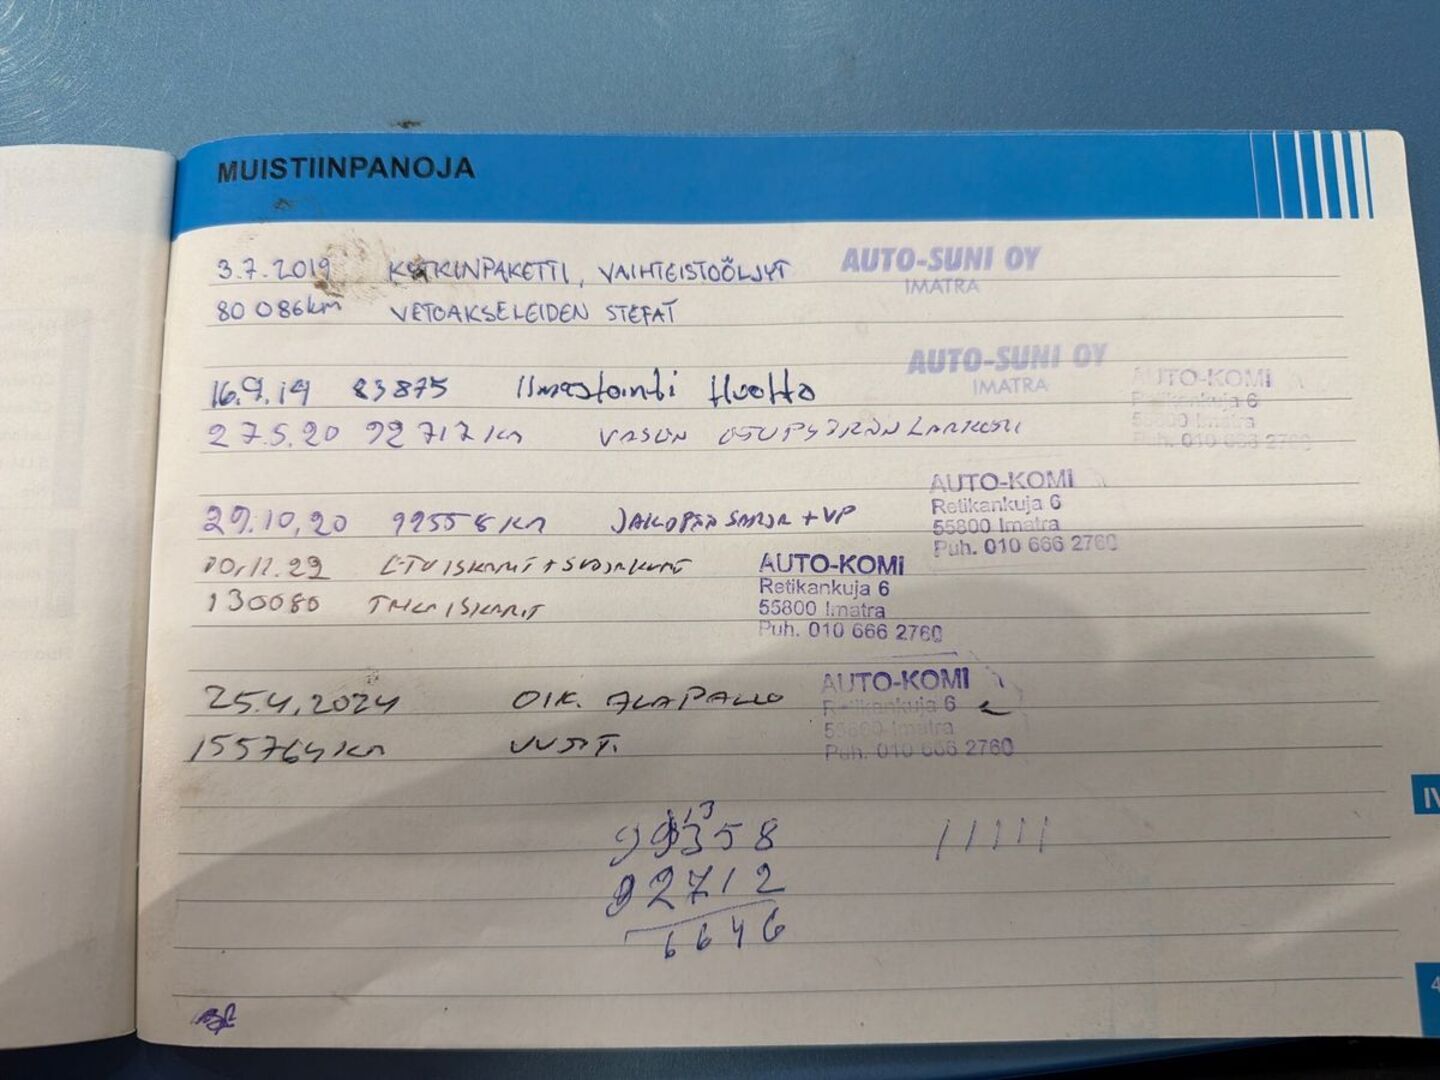 MUISTIINPANOJA
3.7.2019 KYTKINPAKETTI, VAIHTEISTOÖLJYT AUTO-SUNI OY
IMATRA
80 086km VETOAKSELEIDEN STEFAT
16.9.19 83875 Ilmastointi Huolto AUTO-SUNI OY
IMATRA
27.5.20 92712 KM VASEN ETUPYÖRÄN LAAKERI AUTO-KOMI
Retikankuja 6
55800 Imatra
Puh. 010 666 2760
29.10.20 99558 KM JAKOPÄÄ SARJA + VP AUTO-KOMI
Retikankuja 6
55800 Imatra
Puh. 010 666 2760
10.11.22 ETUISKARIT + SUOJAKUMIT AUTO-KOMI
130080 TAKAISKARIT Retikankuja 6
55800 Imatra
Puh. 010 666 2760
25.4.2024 OIK. ALAPALLO AUTO-KOMI
Retikankuja 6
55800 Imatra
155764 KM UUSIT. Puh. 010 666 2760
13
99358
92712
6646
IV
4